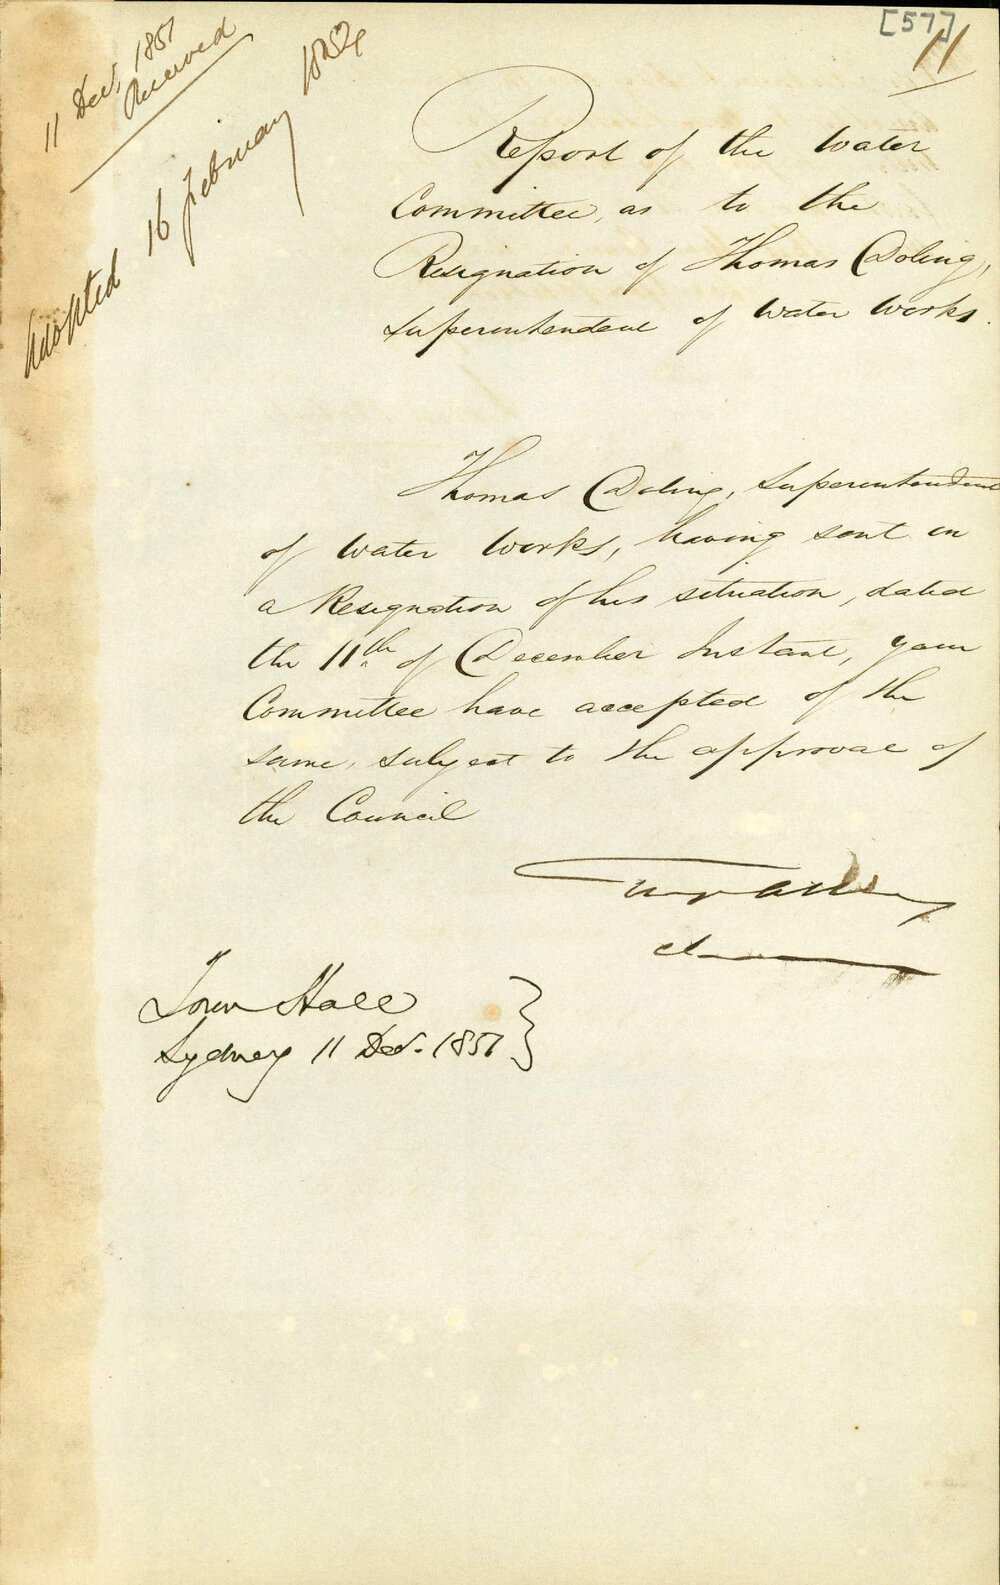 [57]
11
11 Dec. 1851
Received
Adopted 16 February 1852
Report of the Water
Committee, as to the
Resignation of Thomas Doling,
Superintendent of Water Works.
Thomas Doling, Superintendent
of Water Works, having sent in
a Resignation of his situation, dated
the 11th of December Instant, your
Committee have accepted of the
same, subject to the approval of
the Council
Town Hall
Sydney 11 Dec. 1851